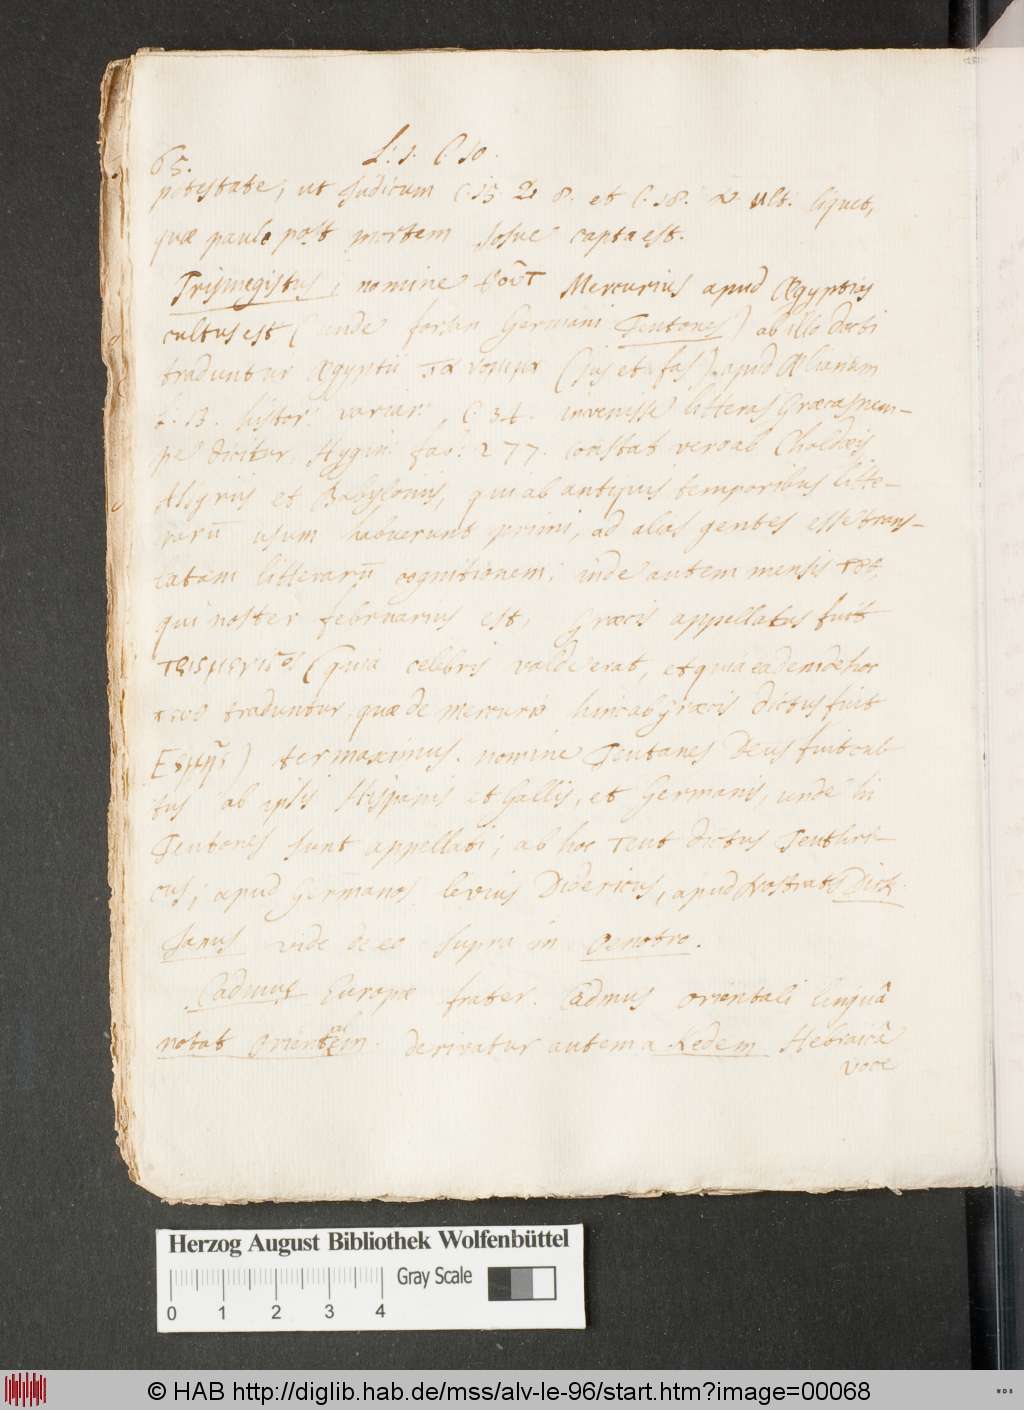 65. L: 1. C. 10.
potestate, ut Judicum C. 15. 8. et C. 18. v. ult. liquet,
quæ paulo post mortem Josue capta est.
Trismegistus, nomine Mercurius apud Ægyptios
cultus est (unde forsan Germani Teutones) ab illo docti
traduntur Ægyptii τὰ νόμιμα (jus et fas) apud Ælianum
L: 13. histor: variar: C. 34. invenisse litteras Græcas nem-
pe dicitur Hygin: fab: 277. constat vero ab Chaldæis
Assyriis et Babyloniis, qui ab antiquis temporibus litte-
rarū usum habuerunt primi, ad alias gentes esse trans-
latam litterarū cognitionem; inde autem mensis
qui noster februarius est, Græcis appellatus fuit
(quia celebris valde erat, et quia eadem de hoc
traduntur quæ de mercurio hinc ab Græcis dictus fuit
) ter maximus. nomine Teutanes Deus fuit cul-
tus ab ipsis Hispanis et Gallis, et Germanis, unde hi
Teutones sunt appellati; ab hoc Teut dictus Teuthri-
cus; apud Germanos levius Didericus, apud Nostrat Dirk.
Janus vide de eo supra in Oenotro.
Cadmus Europæ frater. Cadmus orientali linguâ
notat orientalem. derivatur autem a Kedem Hebraicâ
voce
Herzog August Bibliothek Wolfenbüttel
0 1 2 3 4 Gray Scale
© HAB http://diglib.hab.de/mss/alv-le-96/start.htm?image=00068